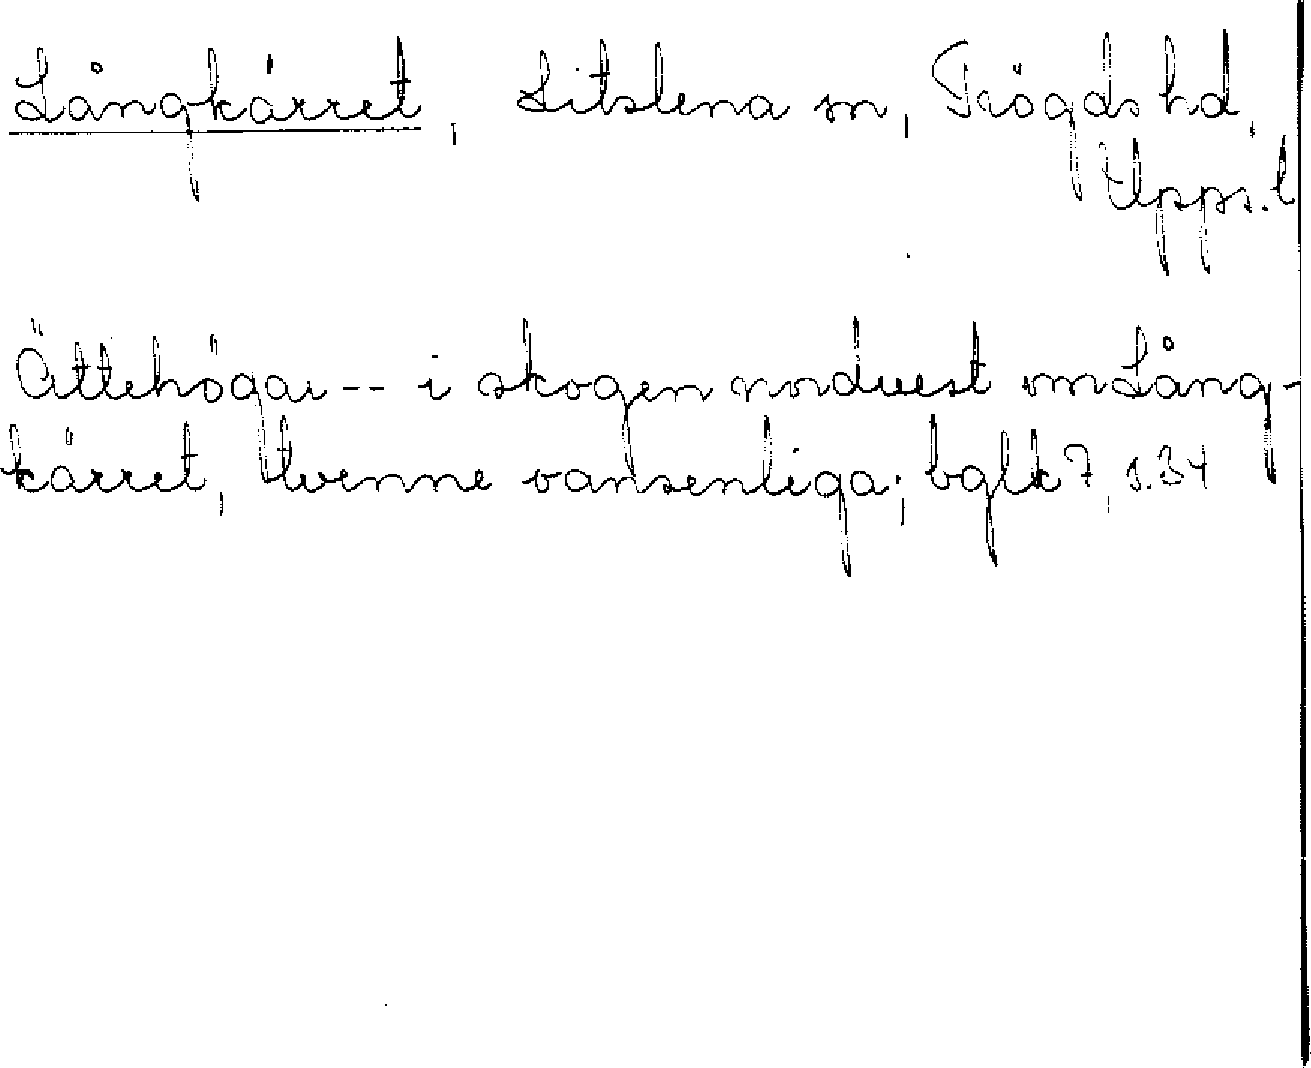 Långkärret, Litslena sn, Trögds hd,
Upps. l
Ättehögar -- i skogen nordvest om Lång-
kärret, tvenne vansenliga; bglk 7, s. 34